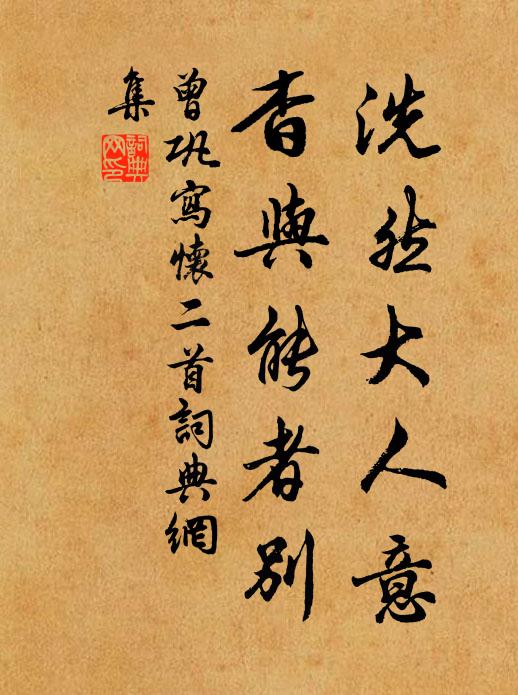 洗然大人意
杳與能者別
曾巩寫懷二首詞典網
集
詞典
网印